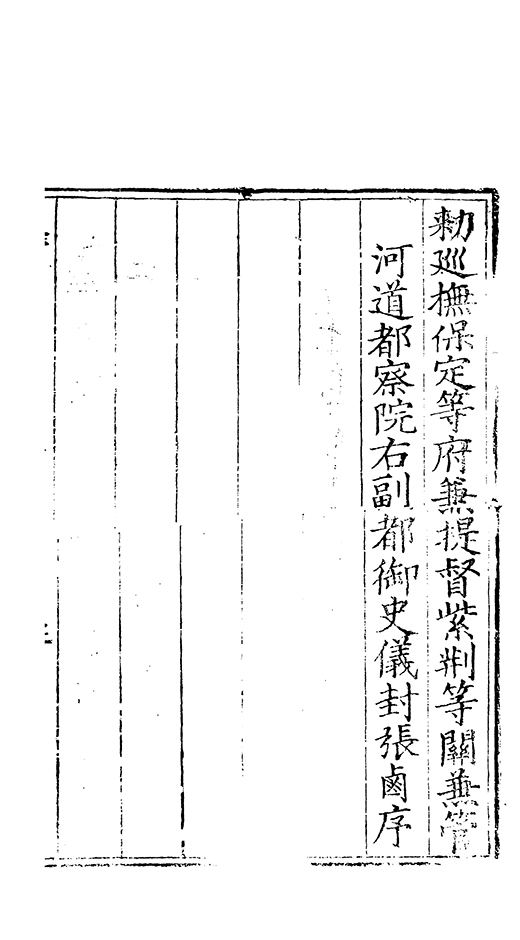 勑廵撫保定等府兼提督紫荆等關兼管
河道都察院右副都御史儀封張鹵序